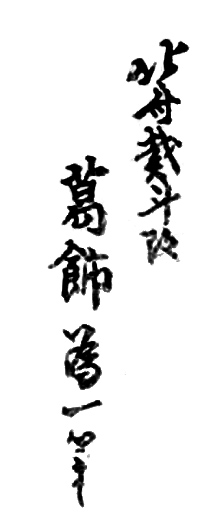 北斎戴斗改
葛飾為一筆